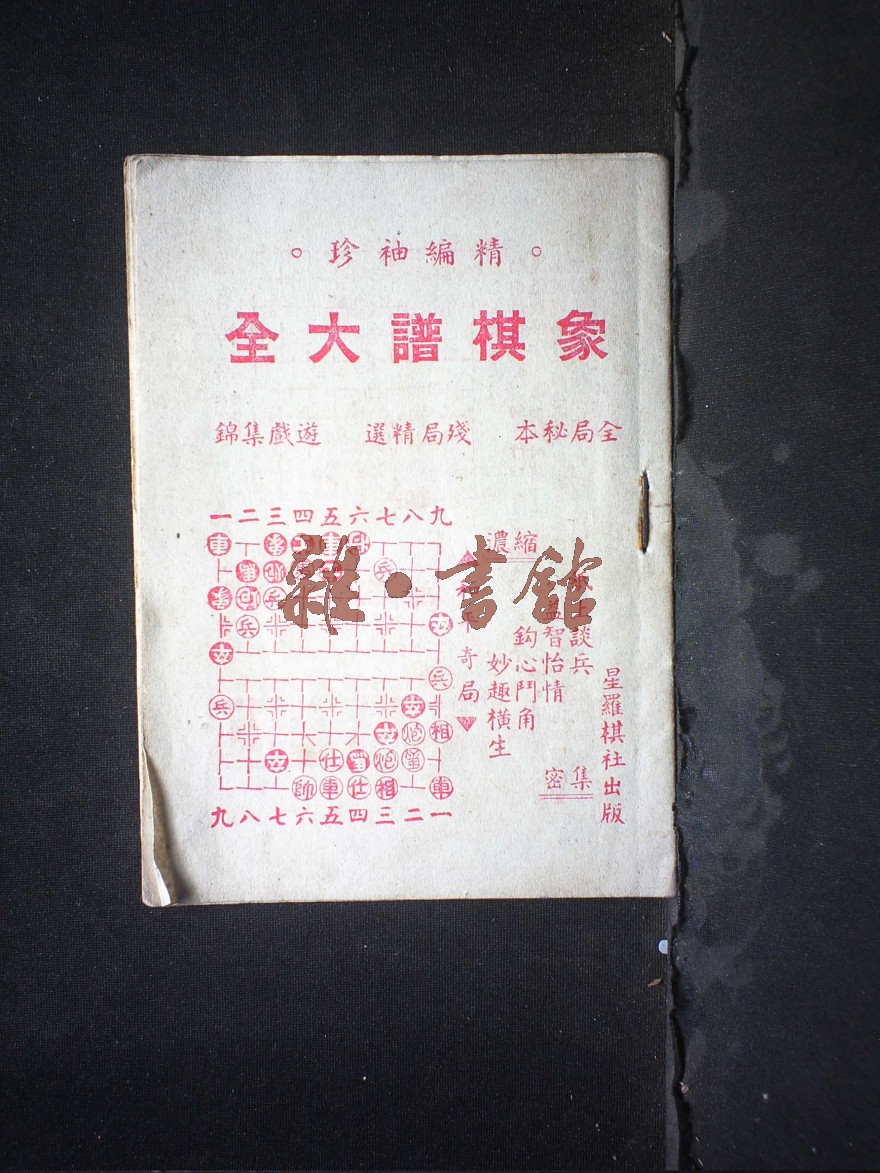 。精編袖珍。
象棋譜大全
全局秘本 殘局精選 遊戲集錦
星羅棋社出版
濃縮
上談兵
益智怡情
鈎心鬥角
妙趣橫生
密集
奇局
一二三四五六七八九
車
兵
兵
兵
兵
相
仕
炮
帥車仕相 車
九八七六五四三二一
雜·書館